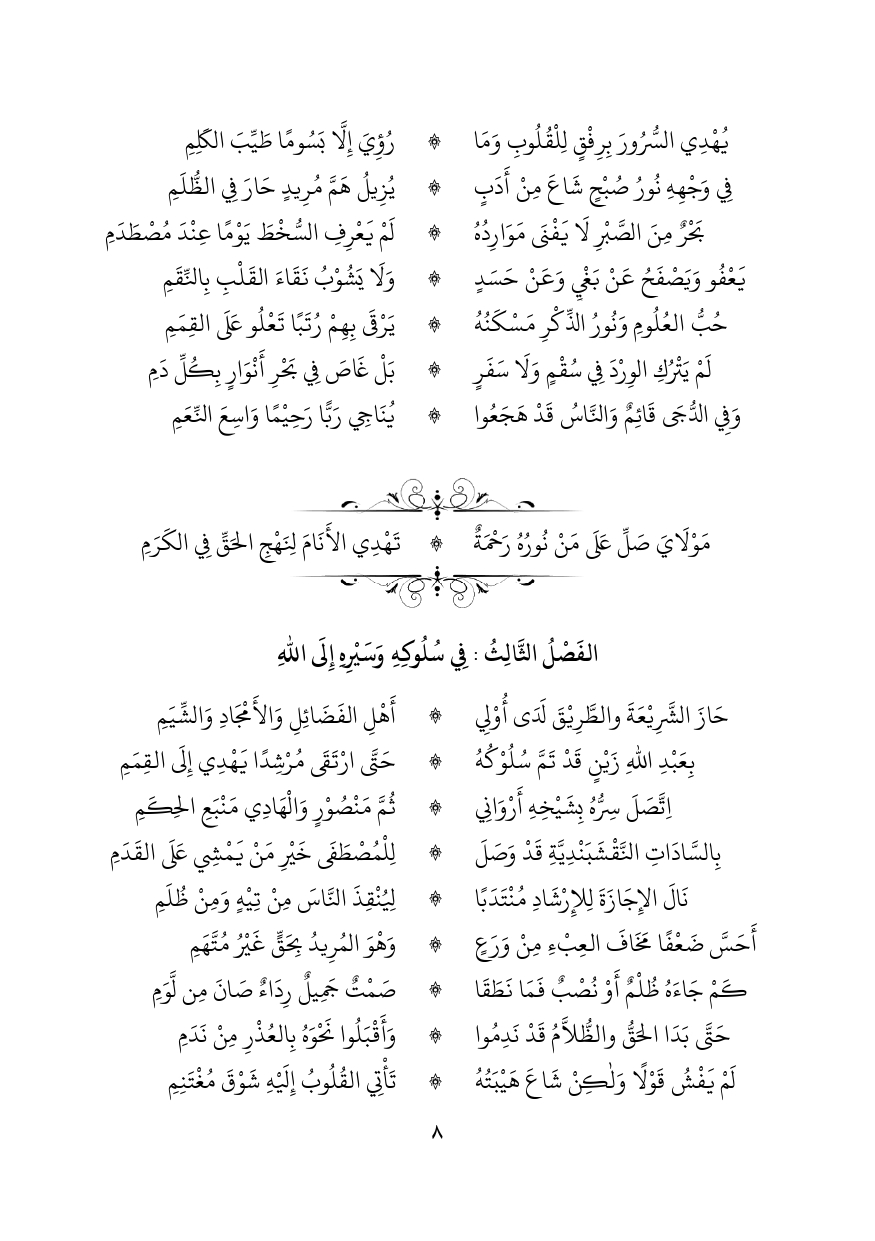 يُهْدِي السُّرُورَ بِرِفْقٍ لِلْقُلُوبِ وَمَا ۞ رُؤِيَ إِلَّا بَسُومًا طَيِّبَ الكَلِمِ
فِي وَجْهِهِ نُورُ صُبْحٍ شَاعَ مِنْ أَدَبٍ ۞ يُزِيلُ هَمَّ مُرِيدٍ حَارَ فِي الظُّلَمِ
بَحْرٌ مِنَ الصَّبْرِ لَا يَفْنَى مَوَارِدُهُ ۞ لَمْ يَعْرِفِ السُّخْطَ يَوْمًا عِنْدَ مُصْطَدَمِ
يَعْفُو وَيَصْفَحُ عَنْ بَغْيٍ وَعَنْ حَسَدٍ ۞ وَلَا يَشُوْبُ نَقَاءَ القَلْبِ بِالنِّقَمِ
حُبُّ العُلُومِ وَنُورُ الذِّكْرِ مَسْكَنُهُ ۞ يَرْقَى بِهِمْ رُتَبًا تَعْلُو عَلَى القِمَمِ
لَمْ يَتْرُكِ الوِرْدَ فِي سُقْمٍ وَلَا سَفَرٍ ۞ بَلْ غَاصَ فِي بَحْرِ أَنْوَارٍ بِكُلِّ دَمِ
وَفِي الدُّجَى قَائِمٌ وَالنَّاسُ قَدْ هَجَعُوا ۞ يُنَاجِي رَبًّا رَحِيْمًا وَاسِعَ النِّعَمِ
مَوْلَايَ صَلِّ عَلَى مَنْ نُورُهُ رَحْمَةٌ ۞ تَهْدِي الأَنَامَ لِنَهْجِ الحَقِّ فِي الكَرَمِ
الفَصْلُ الثَّالِثُ : فِي سُلُوكِهِ وَسَيْرِهِ إِلَى اللهِ
حَازَ الشَّرِيْعَةَ والطَّرِيْقَ لَدَى أُوْلِي ۞ أَهْلِ الفَضَائِلِ وَالأَمْجَادِ وَالشِّيَمِ
بِعَبْدِ اللهِ زَيْنٍ قَدْ تَمَّ سُلُوْكُهُ ۞ حَتَّى ارْتَقَى مُرْشِدًا يَهْدِي إِلَى القِمَمِ
اِتَّصَلَ سِرُّهُ بِشَيْخِهِ أَرْوَانِي ۞ ثُمَّ مَنْصُوْرٍ وَالْهَادِي مَنْبَعِ الحِكَمِ
بِالسَّادَاتِ النَّقْشَبَنْدِيَّةِ قَدْ وَصَلَ ۞ لِلْمُصْطَفَى خَيْرِ مَنْ يَمْشِي عَلَى القَدَمِ
نَالَ الإِجَازَةَ لِلإِرْشَادِ مُنْتَدَبًا ۞ لِيُنْقِذَ النَّاسَ مِنْ تِيْهٍ وَمِنْ ظُلَمِ
أَحَسَّ ضَعْفًا مَخَافَ العِبْءِ مِنْ وَرَعٍ ۞ وَهْوَ المُرِيدُ بِحَقٍّ غَيْرُ مُتَّهَمِ
كَمْ جَاءَهُ ظُلْمٌ أَوْ نُصْبٌ فَمَا نَطَقَا ۞ صَمْتٌ جَمِيلٌ رِدَاءٌ صَانَ مِن لَّوَمِ
حَتَّى بَدَا الحَقُّ والظُّلاَّمُ قَدْ نَدِمُوا ۞ وَأَقْبَلُوا نَحْوَهُ بِالعُذْرِ مِنْ نَدَمِ
لَمْ يَفْشُ قَوْلًا وَلٰكِنْ شَاعَ هَيْبَتُهُ ۞ تَأْتِي القُلُوبُ إِلَيْهِ شَوْقَ مُغْتَنِمِ
٨